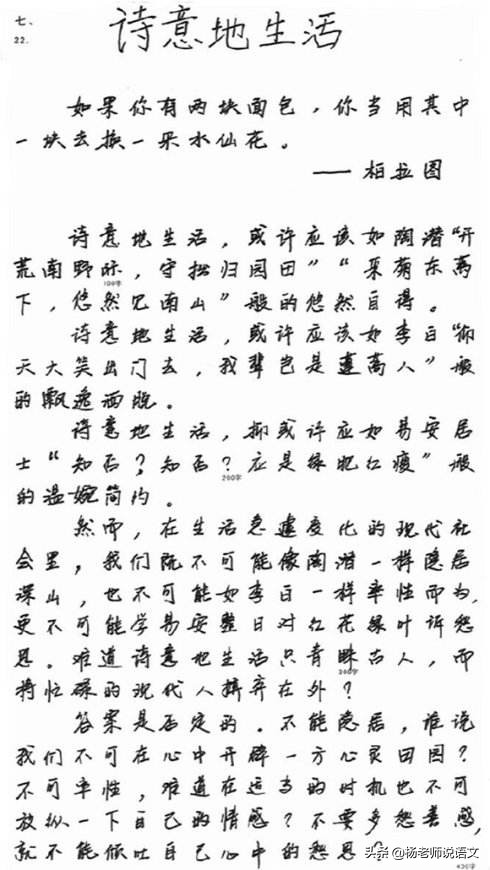 七、
22.
诗意地生活
如果你有两块面包，你当用其中
一块去换一朵水仙花。
——柏拉图
诗意地生活，或许应该如陶潜“开
荒南野际，守拙归园田”“采菊东篱
100字
下，悠然见南山”般的悠然自得。
诗意地生活，或许应该如李白“仰
天大笑出门去，我辈岂是蓬蒿人”般
的飘逸洒脱。
诗意地生活，抑或许应如易安居
士“知否？知否？应是绿肥红瘦”般
200字
的温婉简约。
然而，在生活急遽变化的现代社
会里，我们既不可能像陶潜一样隐居
深山，也不可能如李白一样率性而为，
更不可能学易安整日对红花绿叶诉愁
思。难道诗意地生活只青睐古人，而
将忙碌的现代人摒弃在外？
答案是否定的。不能隐居，谁说
我们不可在心中开辟一方心灵田园？
不可率性，难道在适当的时机也不可
放纵一下自己的情感？不要多愁善感，
就不能倾吐自己心中的愁思
头条@杨老师说语文